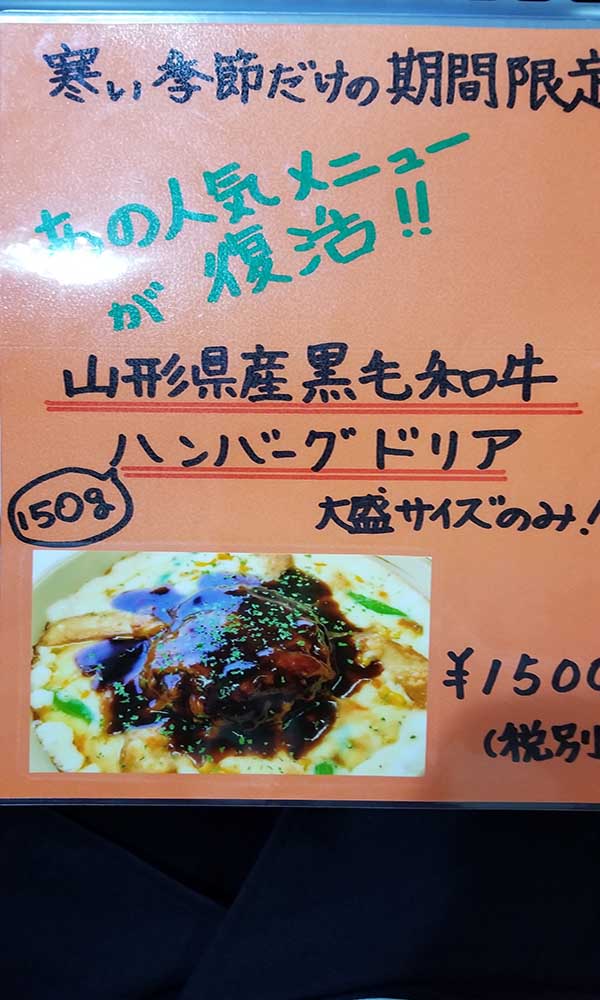 寒い季節だけの期間限定
あの人気メニュー
が復活!!
山形県産黒毛和牛
ハンバーグドリア
150g
大盛サイズのみ!
¥1500
(税別